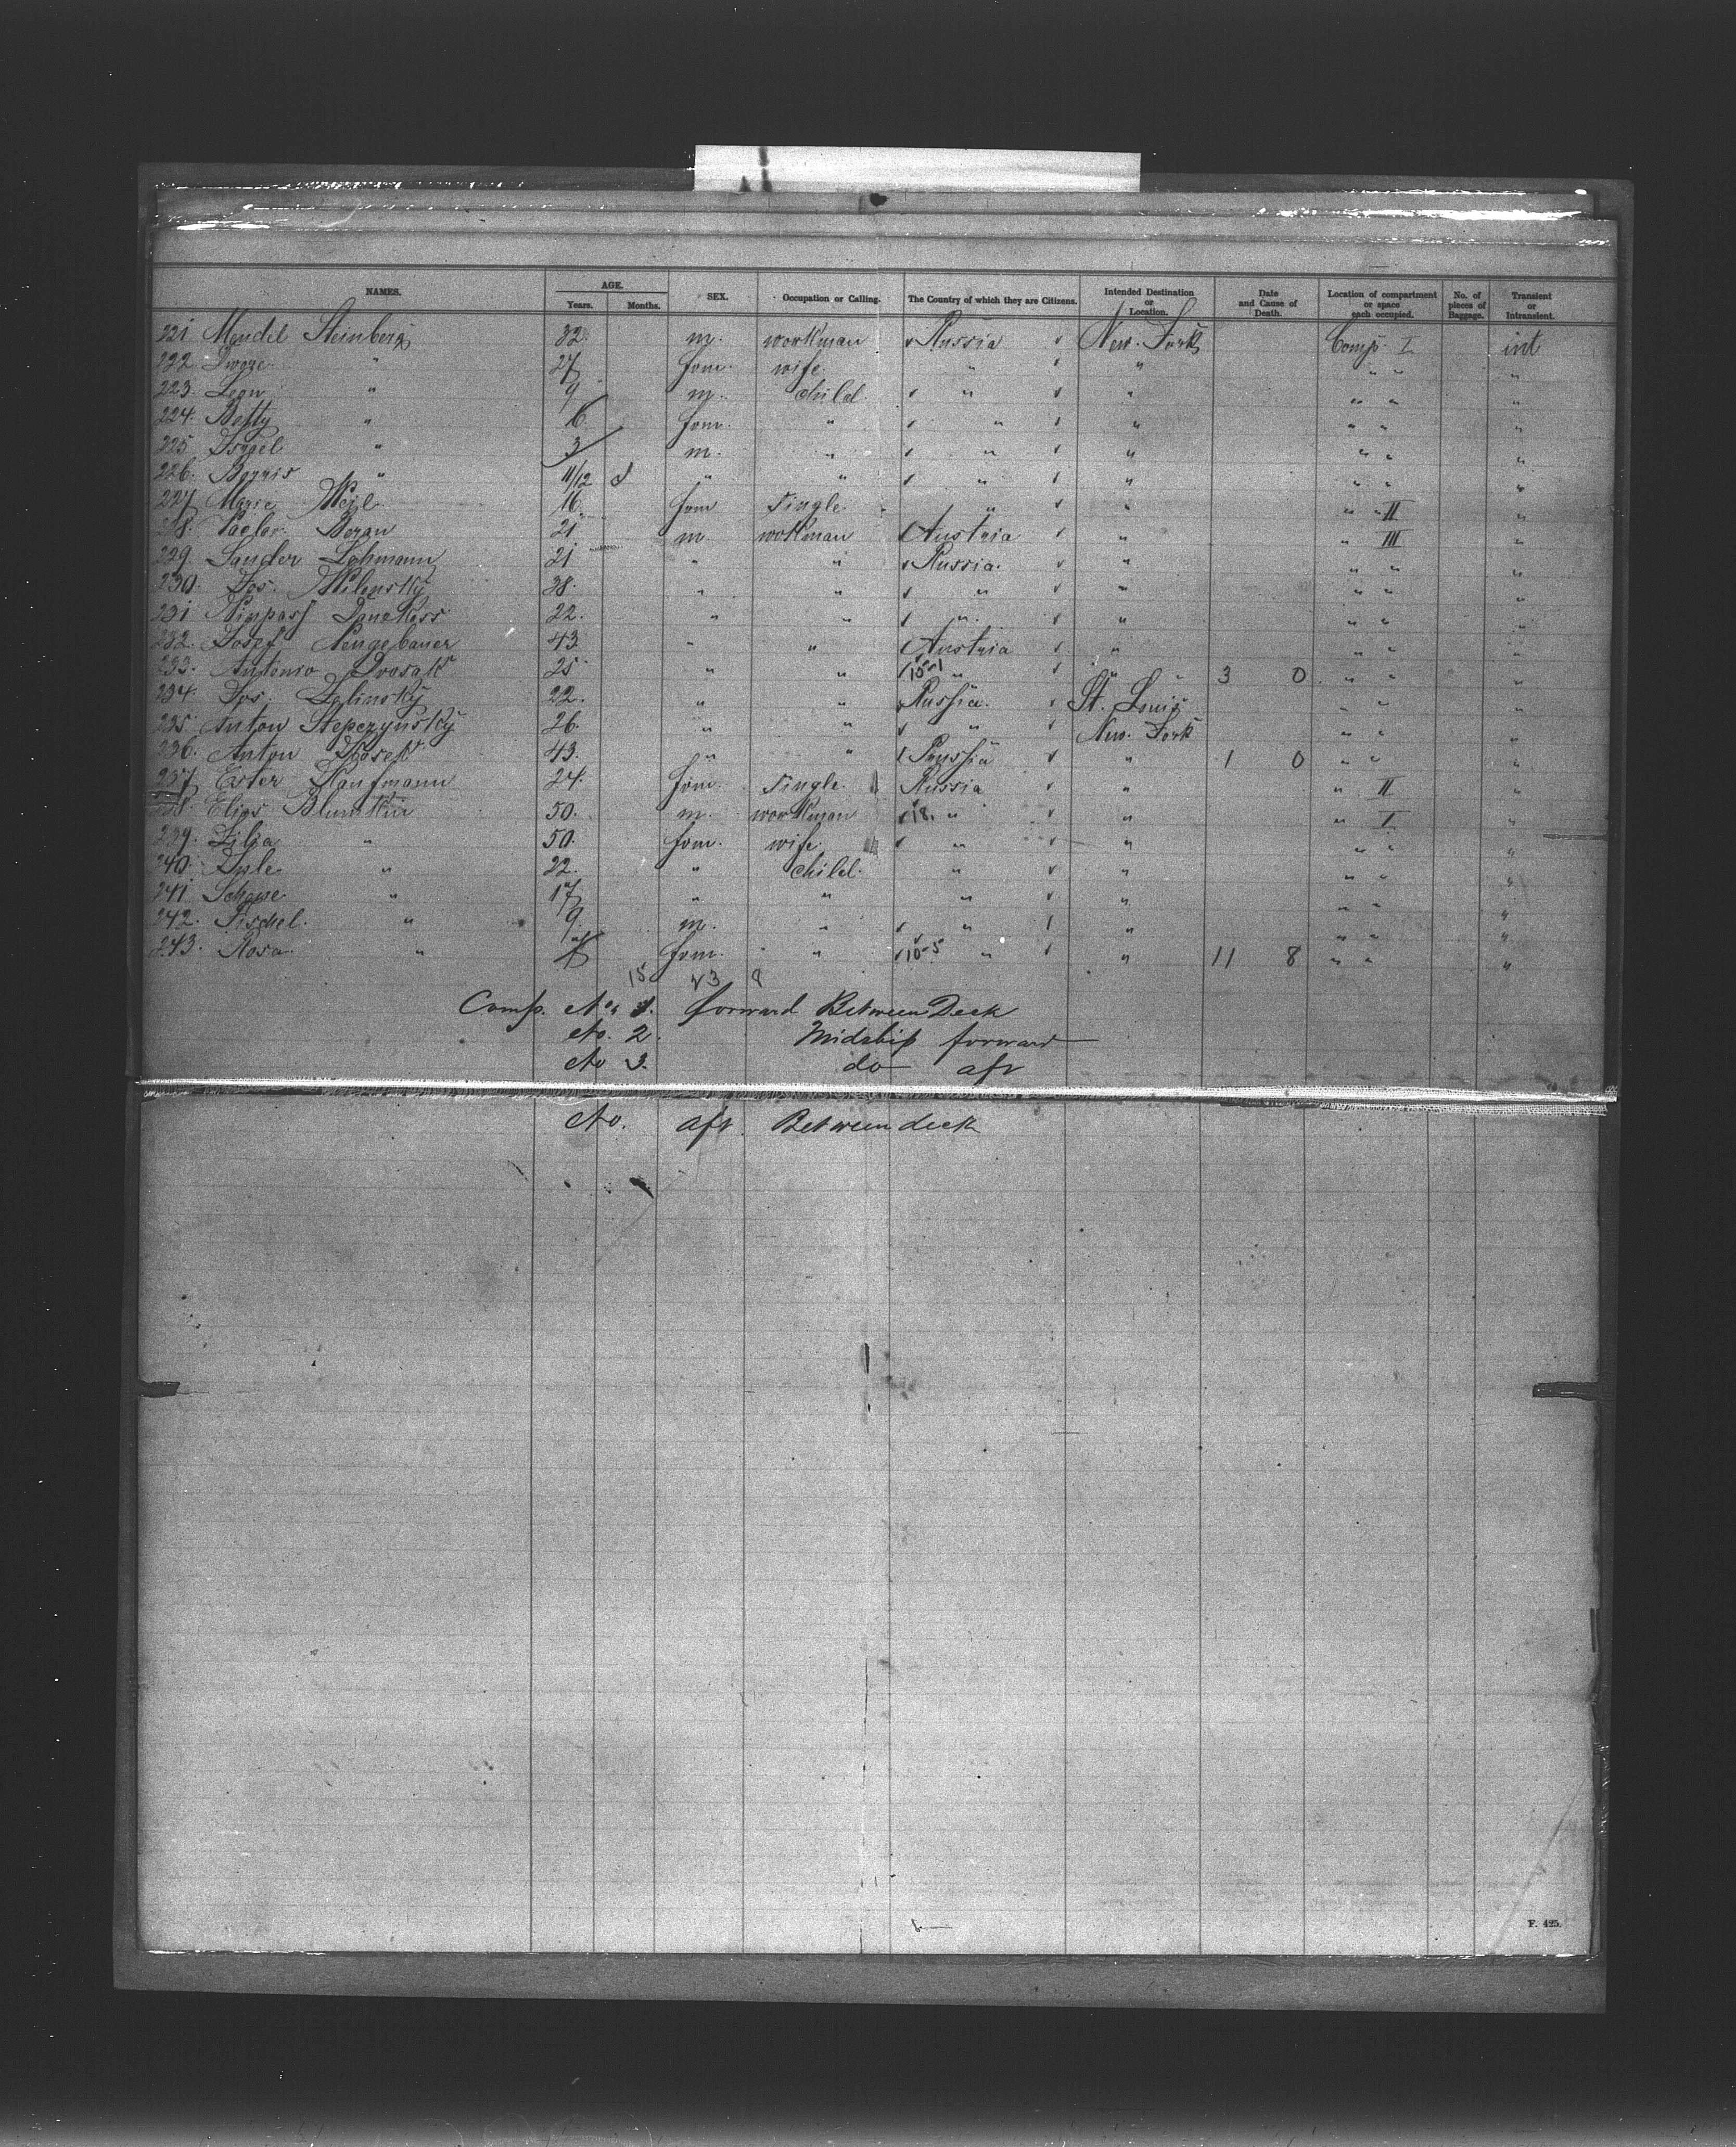 NAMES. AGE. Years. Months. SEX. Occupation or Calling. The Country of which they are Citizens. Intended Destination or Location. Date and Cause of Death. Location of compartment or space each occupied. No. of pieces of Baggage. Transient or Intransient.
221 Mendel Steinberg 32. m. workman Russia New-York Comp. I int
222 " 27 fem. wife " " " " "
223. Leon " 9 m. child. " " " " "
224. Betty " 6 fem. " " " " " "
225 " 3 m. " " " " " "
226. " 11/12 " " " " " " "
227 Marie 16. fem single. " " " II "
228. 21. m workman Austria " " III "
229. Sander Lehmann 21 " " Russia. " " " "
230. Jos. Wilensky 38. " " " " " " "
231 22. " " " " " " "
232. Josef Neugebauer 43. " " Austria " " " "
233. Antonio 25 " " 15-1 " " " 3 0 " " "
234. Jos. Zelinsky 22. " " Russia. St. Louis " " "
235. Anton 26. " " " New-York " " "
236. Anton 43. " " Prussia " 1 0 " " "
237 Ester Kaufmann 24. fem. single. Russia " " II "
238. Elias Blumkin 50. m. workman 18. " " " I "
239. " 50. fem. wife " " " " "
240. " 22. " child. " " " " "
241. " 17 " " " " " " "
242. Fischel. " 9 m. " " " " " "
243. Rosa " fem. " 10-5 " " 11 8 " " "
15 23 8
Comp. No. 1. forward Between Deck
No. 2. Midship forward
No 3. do aft
No. aft Between deck
F. 425.